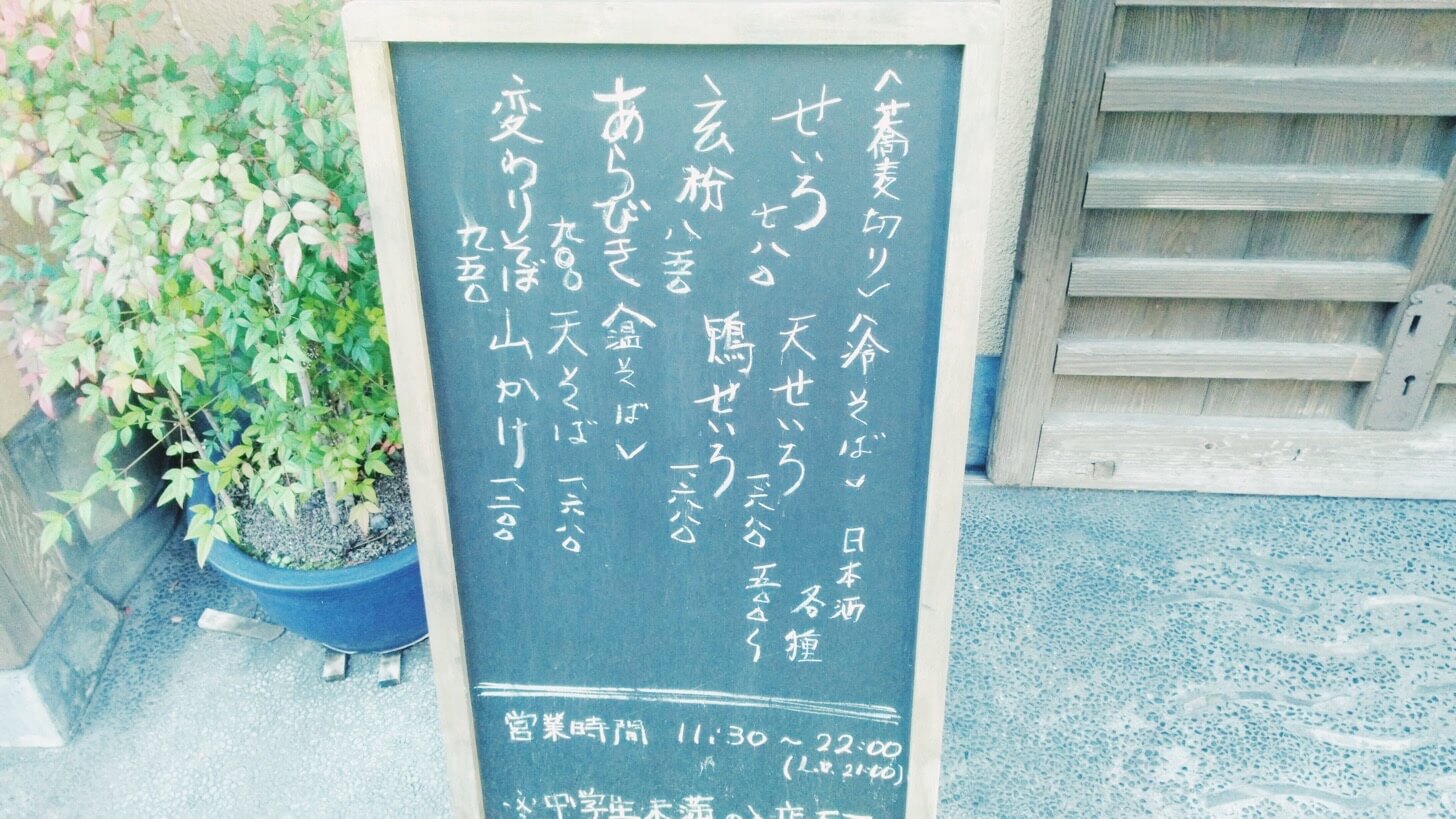 〈蕎麦切り〉
せいろ
七八〇
玄粉
八五〇
あらびき
九〇〇
変わりそば
九五〇
〈冷そば〉
天せいろ
一、六八〇
鴨せいろ
一、六八〇
〈温そば〉
天そば
一、六八〇
山かけ
一、二〇〇
日本酒
各種
五〇〇〜
営業時間 11:30 ~ 22:00
(L.o. 21:00)
※中学生未満の入店